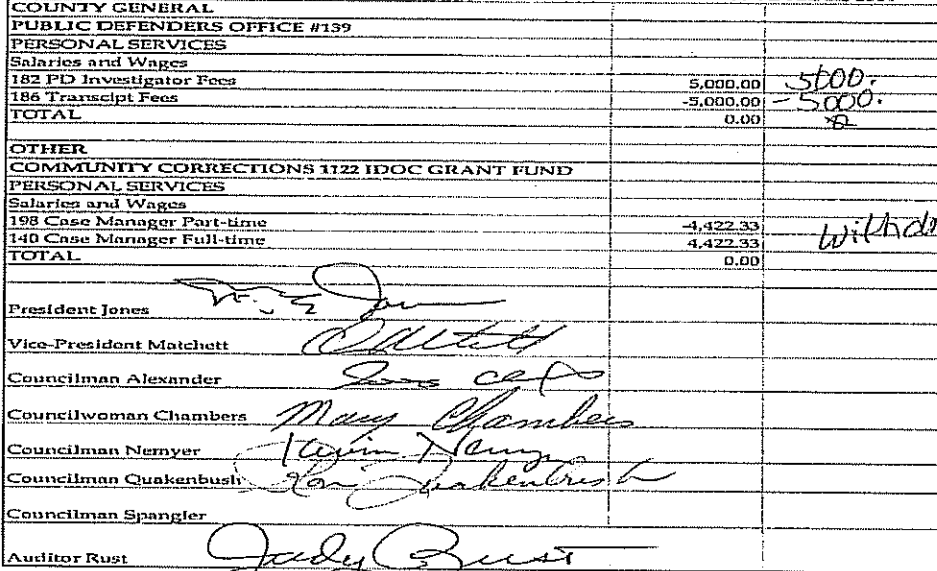 COUNTY GENERAL
PUBLIC DEFENDERS OFFICE #139
PERSONAL SERVICES
Salaries and Wages
182 PD Investigator Fees 5,000.00 5000.
186 Transcipt Fees -5,000.00 -5000.
TOTAL 0.00
OTHER
COMMUNITY CORRECTIONS 1122 IDOC GRANT FUND
PERSONAL SERVICES
Salaries and Wages
198 Case Manager Part-time -4,422.33
140 Case Manager Full-time 4,422.33
TOTAL 0.00
President Jones
Vice-President Matchett
Councilman Alexander
Councilwoman Chambers Mary Chambers
Councilman Nemyer
Councilman Quakenbush Quakenbush
Councilman Spangler
Auditor Rust Judy Rust